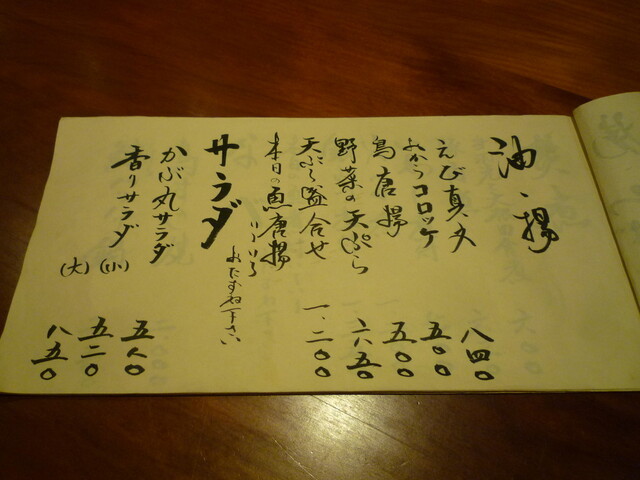 油、揚
えび真丈 八四〇
みかうコロッケ 五〇〇
鳥唐揚 五〇〇
野菜の天ぷら 六五〇
天ぷら盛合せ 一、二〇〇
本日の魚唐揚 いろいろ
おたずね下さい
サラダ
かぶ丸サラダ 五八〇
香りサラダ (小) 五二〇
(大) 八五〇